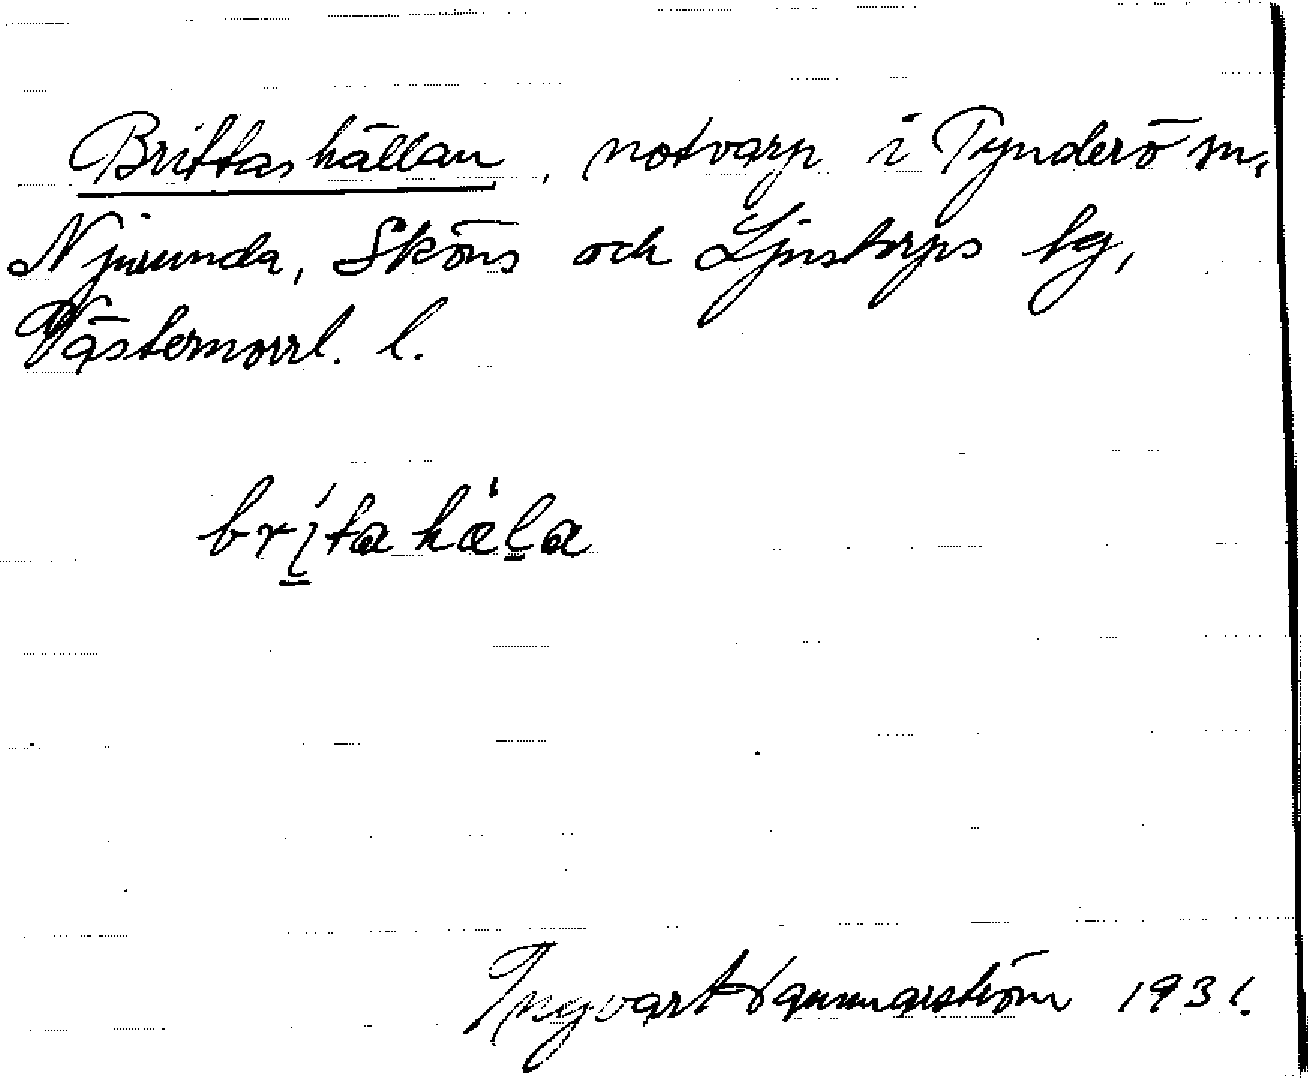 Brittashällan, notvarp i Tynderö m.
Njurunda, Sköns och Ljustorps tg,
Västernorrl. l.
brita hæla
Ingvart Hammarström 1931.